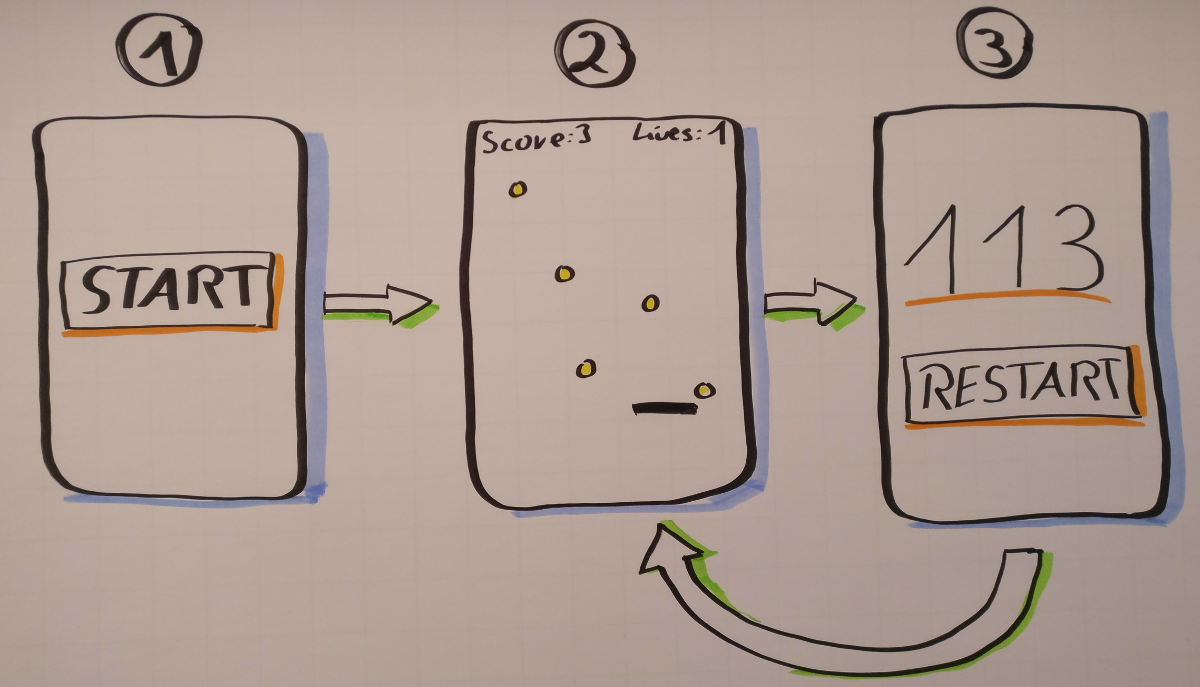 1
START
2
Score:3 Lives:1
3
113
RESTART